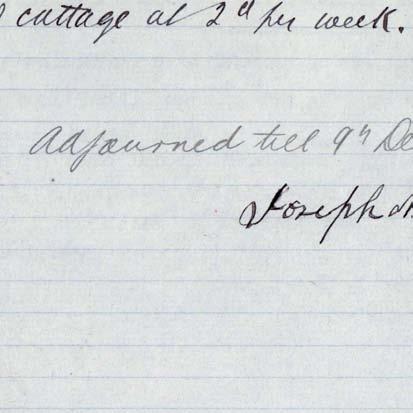 cottage at 2d per week.
Adjourned till 9th De
Joseph